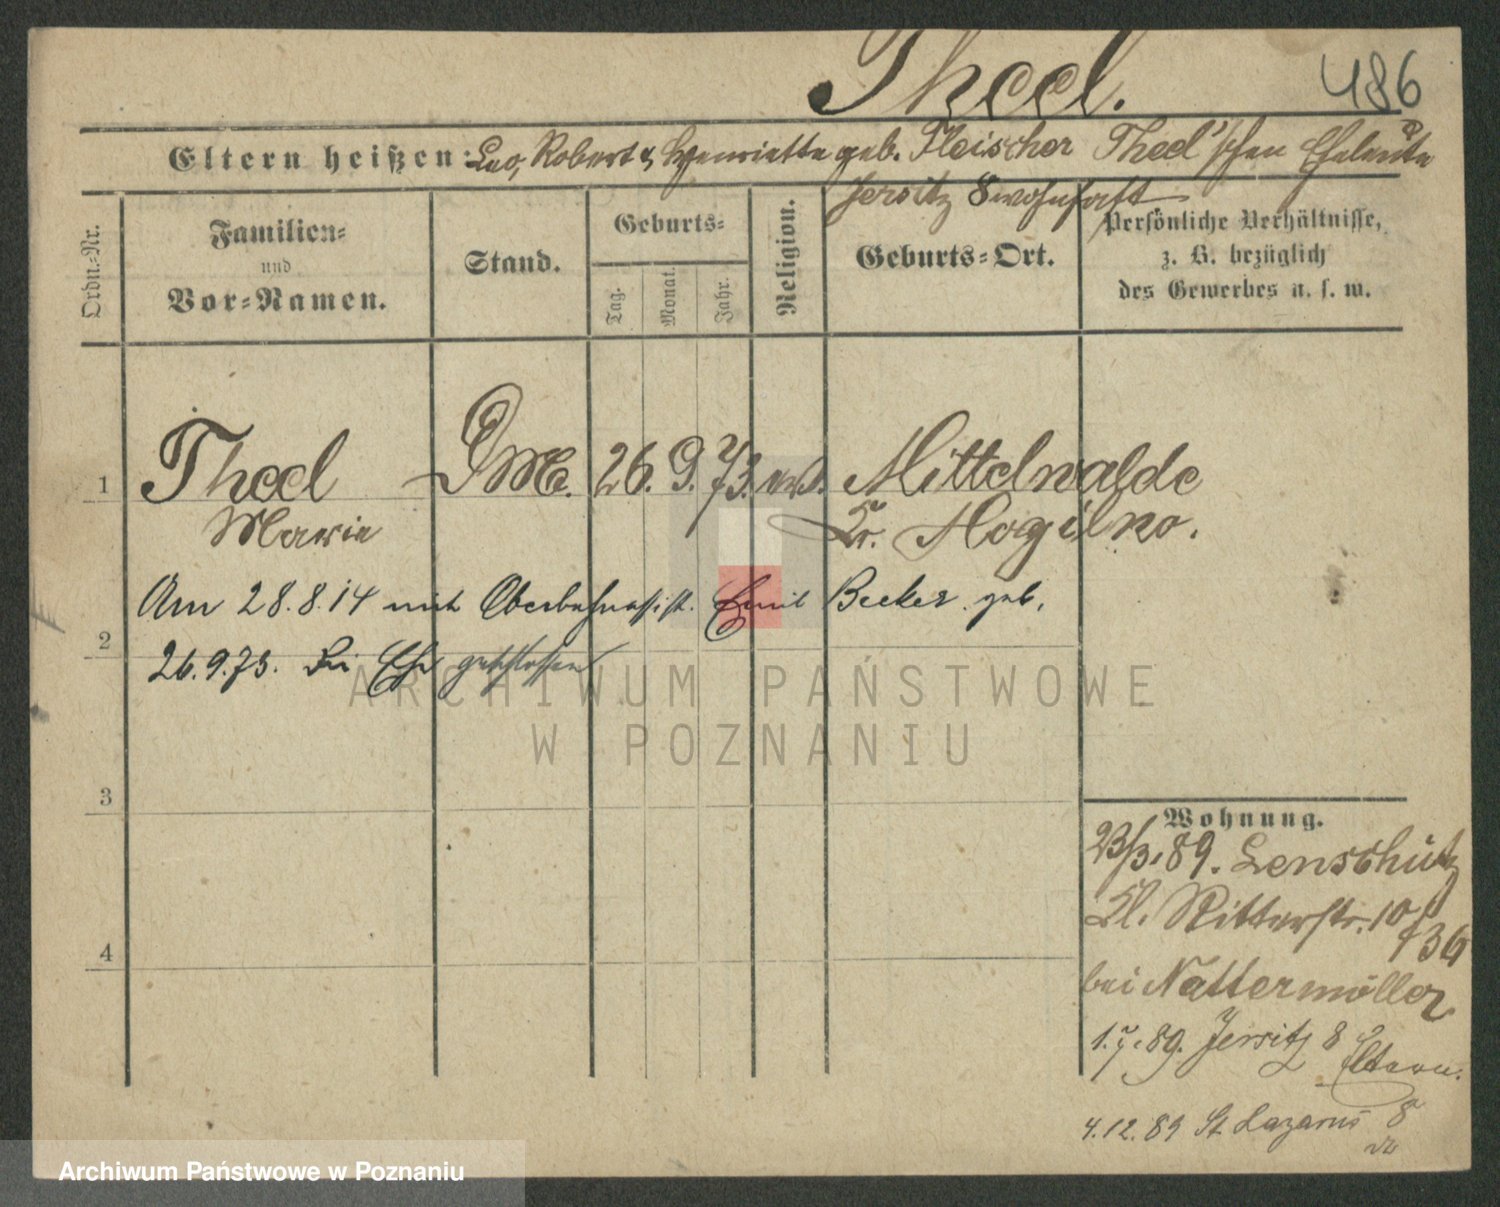 Theel.
486
Eltern heißen: Leo, Robert & Henriette geb. Fleischer Theel'schen Eheleute
Jersitz 8 wohnhaft
Ordn.-Nr.
Familien-
und
Vor-Namen.
Stand.
Geburts-
Tag.
Monat.
Jahr.
Religion.
Geburts-Ort.
Persönliche Verhältnisse,
z. B. bezüglich
des Gewerbes u. s. w.
1
Theel
26. 9. 73.
Mittelwalde
Marie
Kr. Mogilno.
Am 28.8.14 mit Oberbahnassist. Emil Becker geb.
2
26.9.73. die Ehe geschlossen
ARCHIWUM PAŃSTWOWE
W POZNANIU
3
Wohnung.
23/3.89. Lenschütz
Kl. Ritterstr. 10
bei Nattermöller
4
1.7.89. Jersitz 8
Eltern.
4.12.89 St Lazarus 8
Archiwum Państwowe w Poznaniu